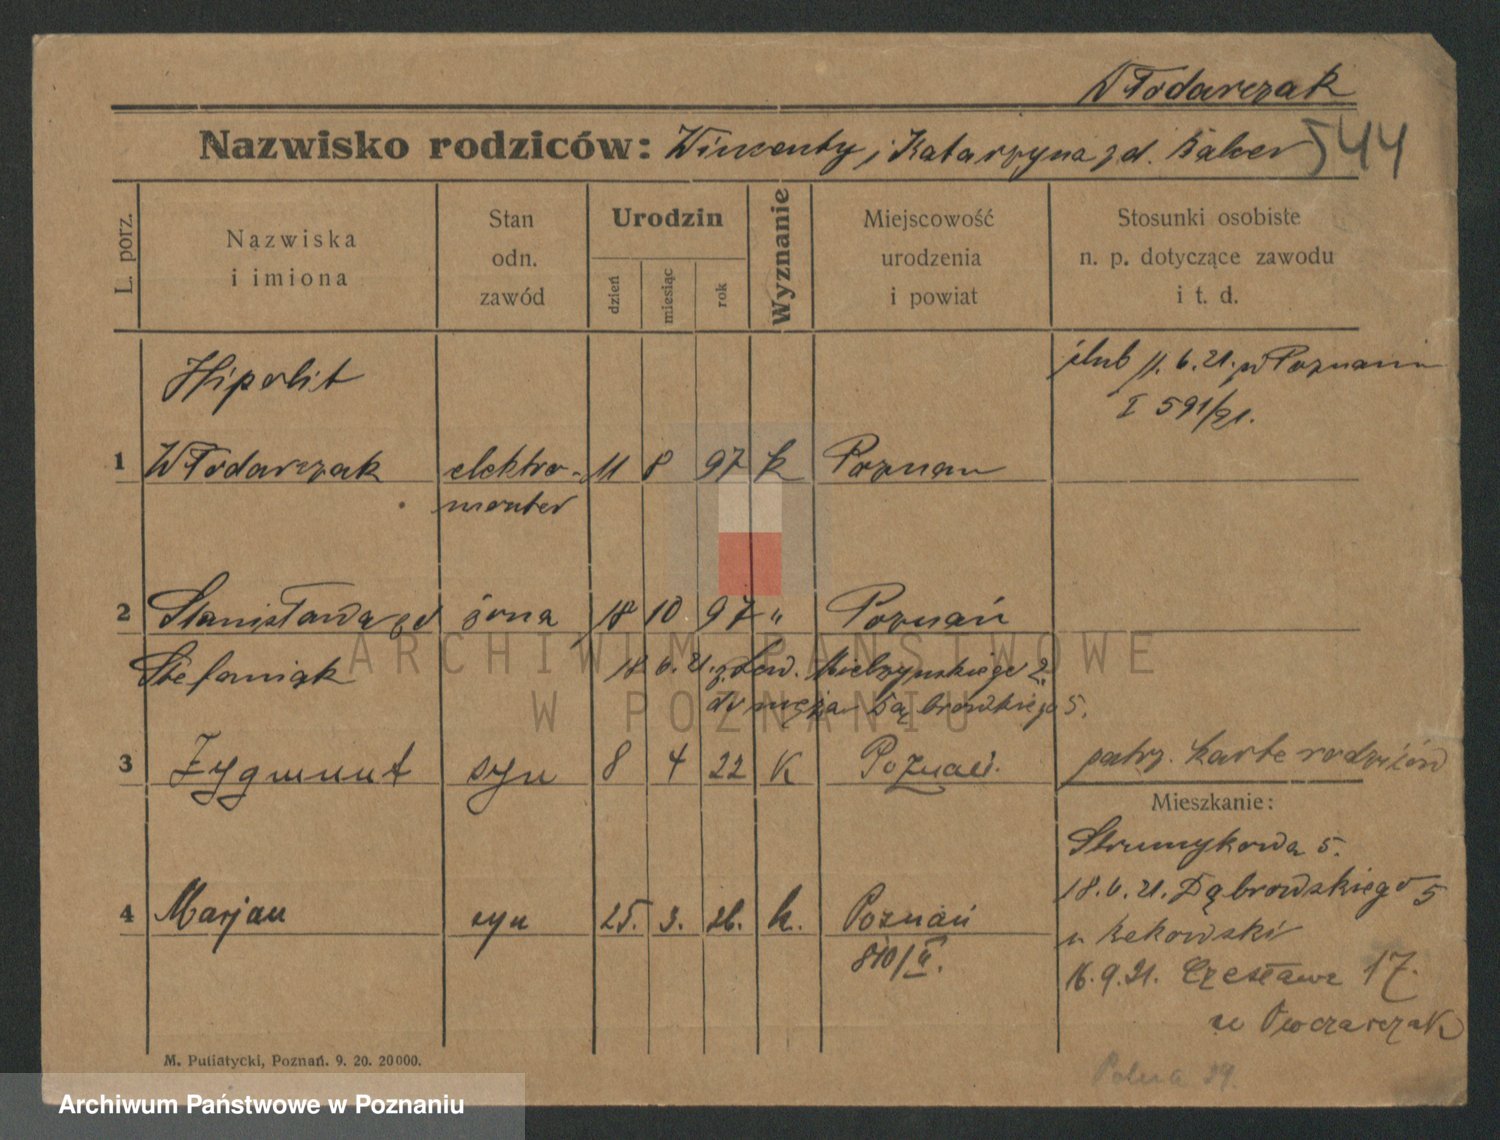 Włodarczak
Nazwisko rodziców: Wincenty i Katarzyna z d.
544
L. porz.
Nazwiska
i imiona
Stan
odn.
zawód
Urodzin
dzień
miesiąc
rok
Wyznanie
Miejscowość
urodzenia
i powiat
Stosunki osobiste
n. p. dotyczące zawodu
i t. d.
Hipolit
ślub 11. 6. 21. w Poznaniu
I 591/21.
1 Włodarczak elektro- 11 8 97 k Poznań
monter
2 Stanisława zd żona 18 10 97 " Poznań
Stefaniak 18 6. 21. z Lew. Mielżyńskiego 2.
do męża Dąbrowskiego 5.
3 Zygmunt syn 8 4 22 K Poznań. patrz. kartę rodziców
Mieszkanie:
Strumykowa 5.
18. 6. 21. Dąbrowskiego 5
4 Marjan syn 25. 3. 26. k. Poznań
u Rekowski
810/II.
16. 9. 21. Czesława 17.
u Owczarczak
M. Putiatycki, Poznań. 9. 20. 20000.
ARCHIWUM PAŃSTWOWE
W POZNANIU
Archiwum Państwowe w Poznaniu